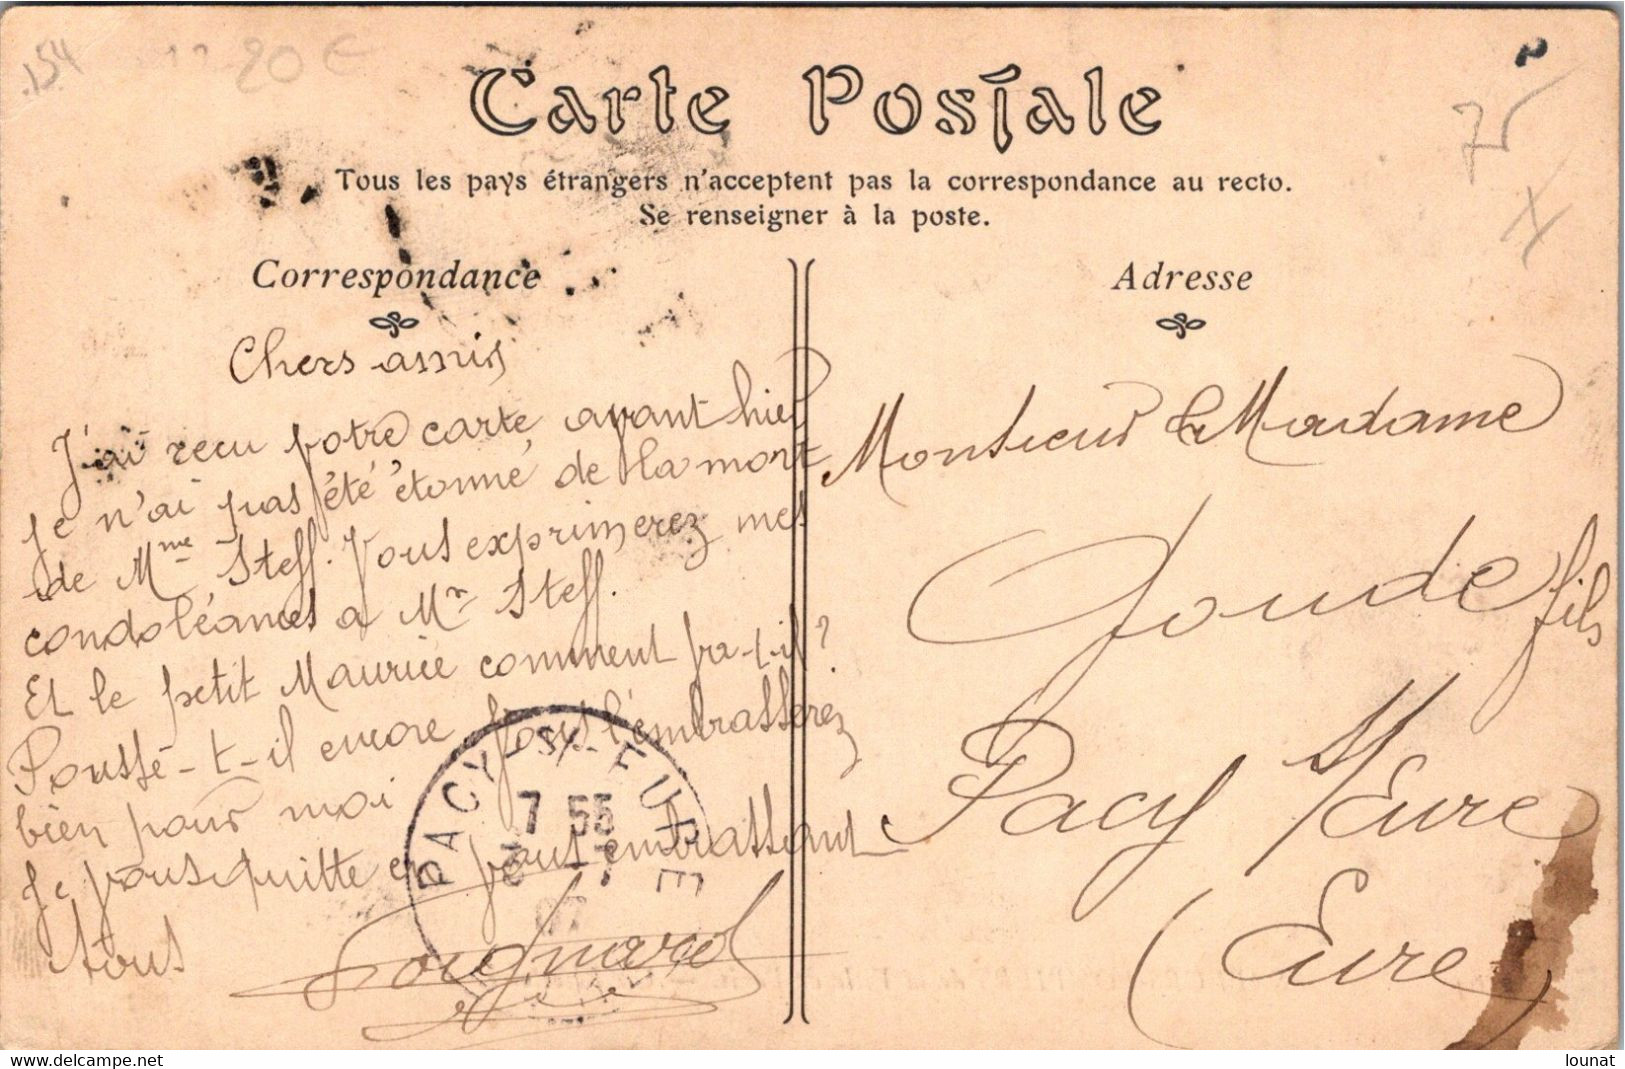 154 20 €
75
X
Carte Postale
Tous les pays étrangers n'acceptent pas la correspondance au recto.
Se renseigner à la poste.
Correspondance
Chers amis
J'ai recu votre carte avant hier
je n'ai pas été étonné de la mort
de Mme Steff. Vous exprimerez mes
condoléances a Mr Steff.
Et le petit Maurice comment va-t-il ?
Poussé-t-il encore vous l'embrasserez
bien pour moi
Je vous quitte en vous embrassant
tous
PACY-S-EURE
7 55
Adresse
Monsieur & Madame
Goude fils
Pacy s/Eure
(Eure)
www.delcampe.net
lounat